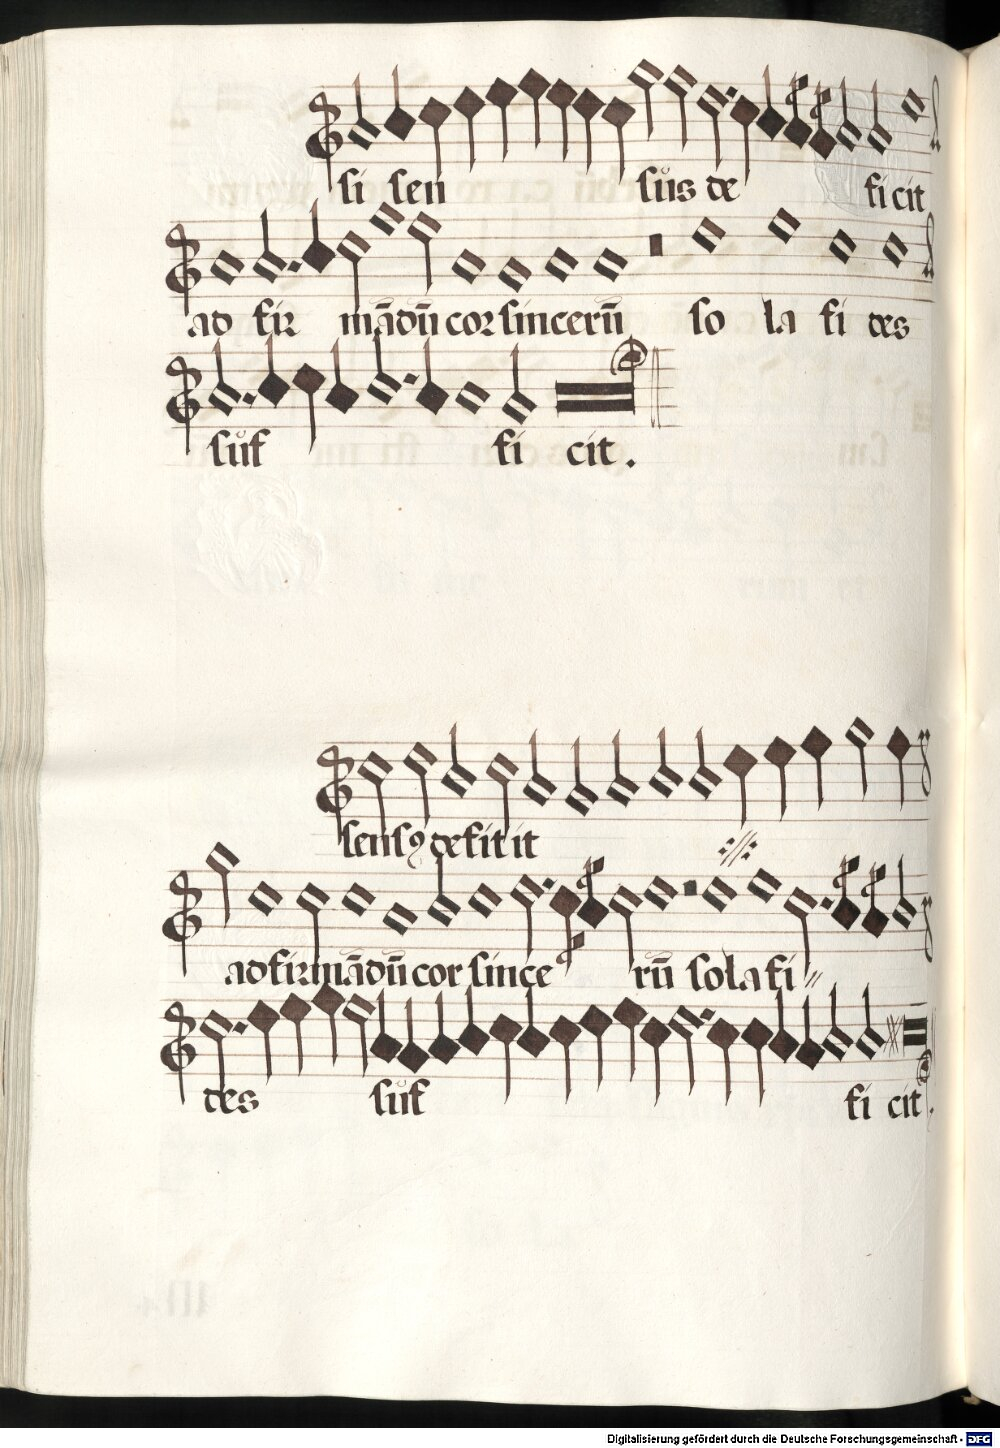 si sen sůs de ficit
ad fir mādū cor sincerū so la fi des
sůf fi cit.
sensꝯ defitit
ad firmādū cor since rū sola fi
des sůf fi cit.
Digitalisierung gefördert durch die Deutsche Forschungsgemeinschaft - DFG